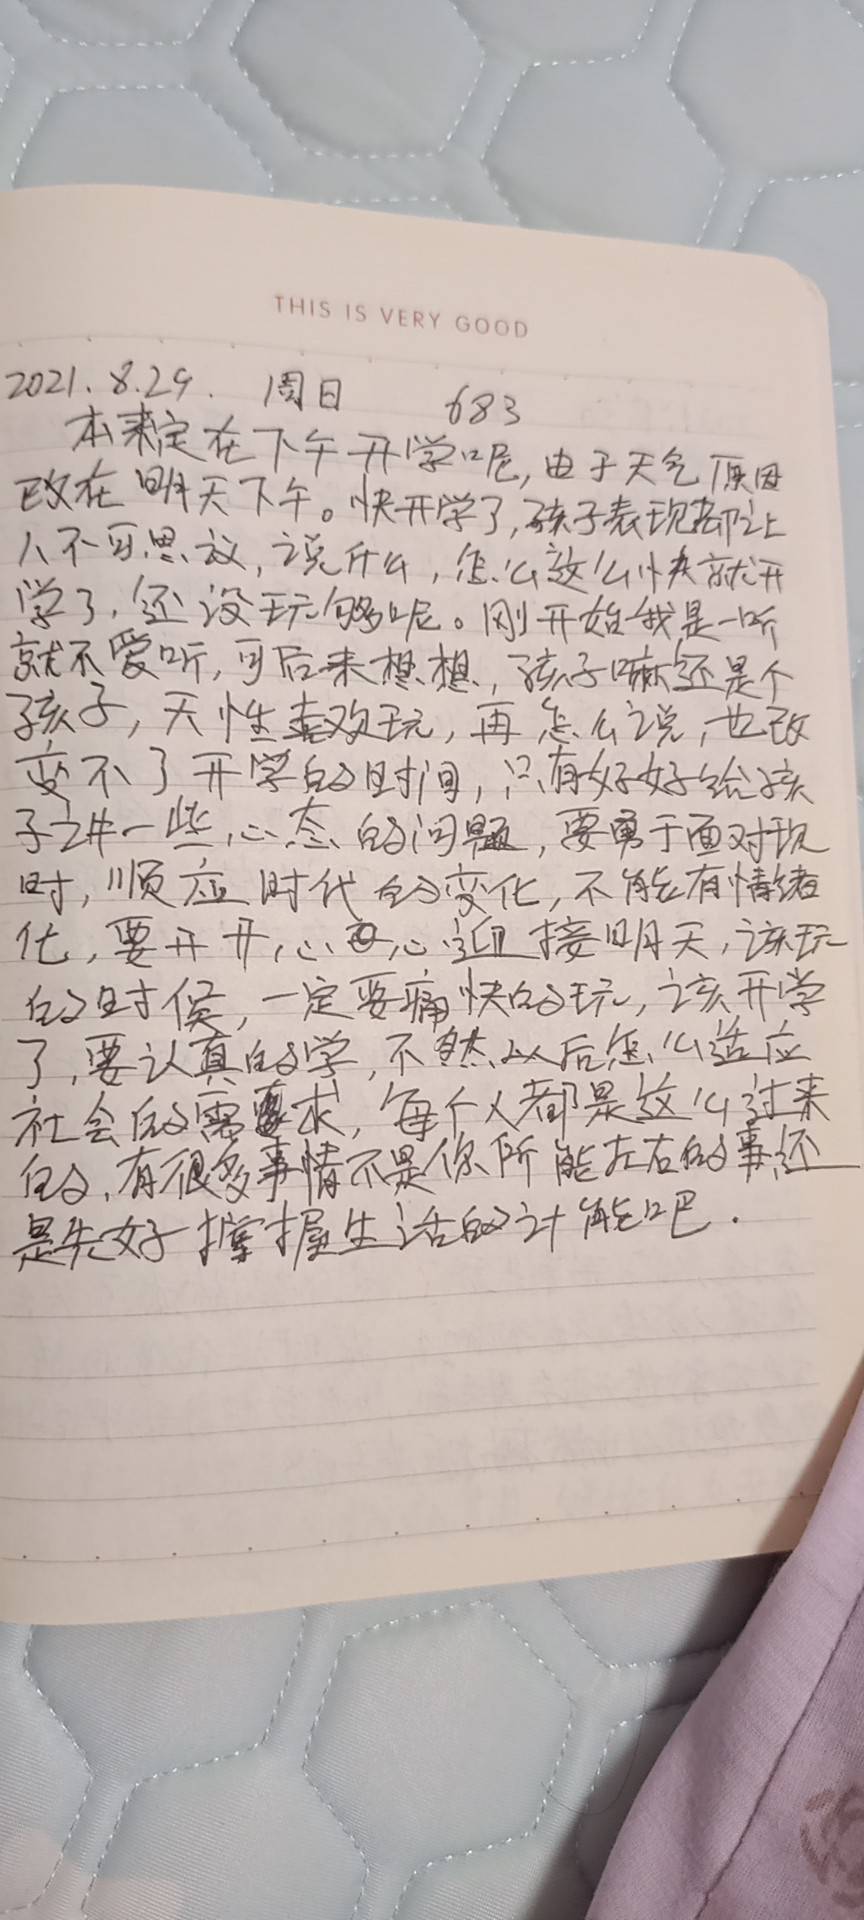 THIS IS VERY GOOD
2021.8.29. 周日 683
本来定在下午开学呢,由于天气原因
改在明天下午。快开学了,孩子表现都让
人不可思议,说什么,怎么这么快就开
学了,还没玩够呢。刚开始我是一听
就不爱听,可后来想想,孩子嘛还是个
孩子,天性喜欢玩,再怎么说,也改
变不了开学的时间,只有好好给孩
子讲一些心态的问题,要勇于面对现
时,顺应时代的变化,不能有情绪
化,要开开心心迎接明天,该玩
的时候,一定要痛快的玩,该开学
了,要认真的学,不然以后怎么适应
社会的需求,每个人都是这么过来
的,有很多事情不是你所能左右的事,还
是先好掌握生活的计能吧.